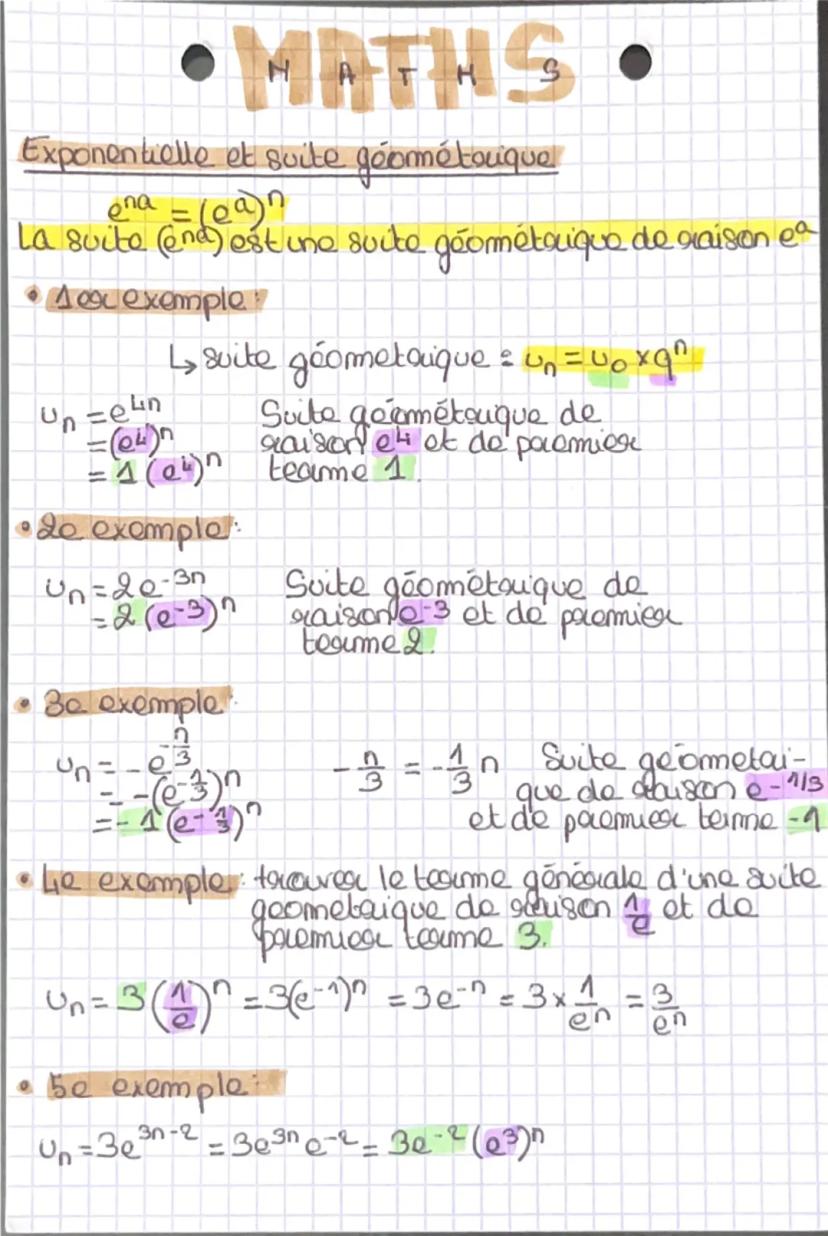 MATHS
M A T H S
Exponentielle et suite géométrique
eⁿᵃ = (eᵃ)ⁿ
La suite (eⁿᵃ) est une suite géométrique de raison eᵃ
• 1er exemple :
↳ suite géometrique : uₙ = u₀ × qⁿ
uₙ = e⁴ⁿ
= (e⁴)ⁿ
= 1 (e⁴)ⁿ
Suite géométrique de
raison e⁴ et de premier
terme 1.
• 2e exemple :
uₙ = 2e⁻³ⁿ
= 2 (e⁻³)ⁿ
Suite géométrique de
raison e⁻³ et de premier
terme 2.
• 3e exemple :
uₙ = -e^(-n/3)
= -(e^(-1/3))ⁿ
= -1 (e^(-1/3))ⁿ
-n/3 = -1/3 n
Suite géometri-
que de raison e^(-1/3)
et de premier terme -1
• 4e exemple : trouver le terme générale d'une suite
geometrique de raison 1/e et de
premier terme 3.
uₙ = 3 (1/e)ⁿ = 3(e⁻¹)ⁿ = 3e⁻ⁿ = 3 × 1/eⁿ = 3/eⁿ
• 5e exemple :
uₙ = 3e³ⁿ⁻² = 3e³ⁿ e⁻² = 3e⁻² (e³)ⁿ